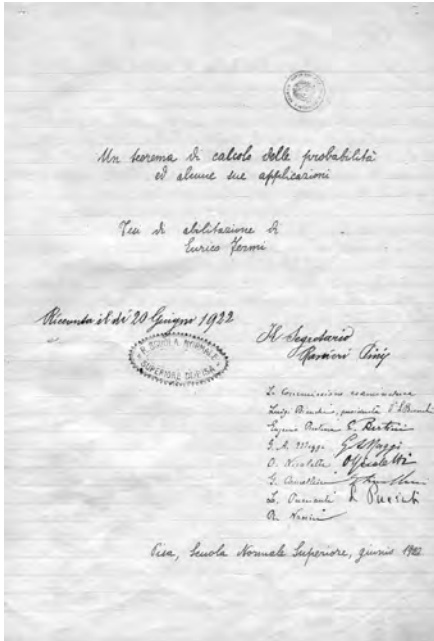 Un teorema di calcolo delle probabilità
ed alcune sue applicazioni
Tesi di abilitazione di
Enrico Fermi
Ricevuta il dì 20 Giugno 1922
Il Segretario
R. SCUOLA NORMALE
SUPERIORE DI PISA
La Commissione esaminatrice
Luigi Bianchi, presidente
Eugenio Bertini E. Bertini
G. A. Maggi G A Maggi
O. Nicoletti O Nicoletti
L. Puccianti L Puccianti
Pisa, Scuola Normale Superiore, giugno 1922